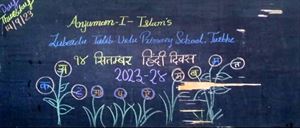 Day
Thursday
14/9/23
Anjuman-I-Islam's
Zubeida Talib Urdu Primary School, Turbhe
१४ सितम्बर हिंदी दिवस
2023-24
अ
क
म